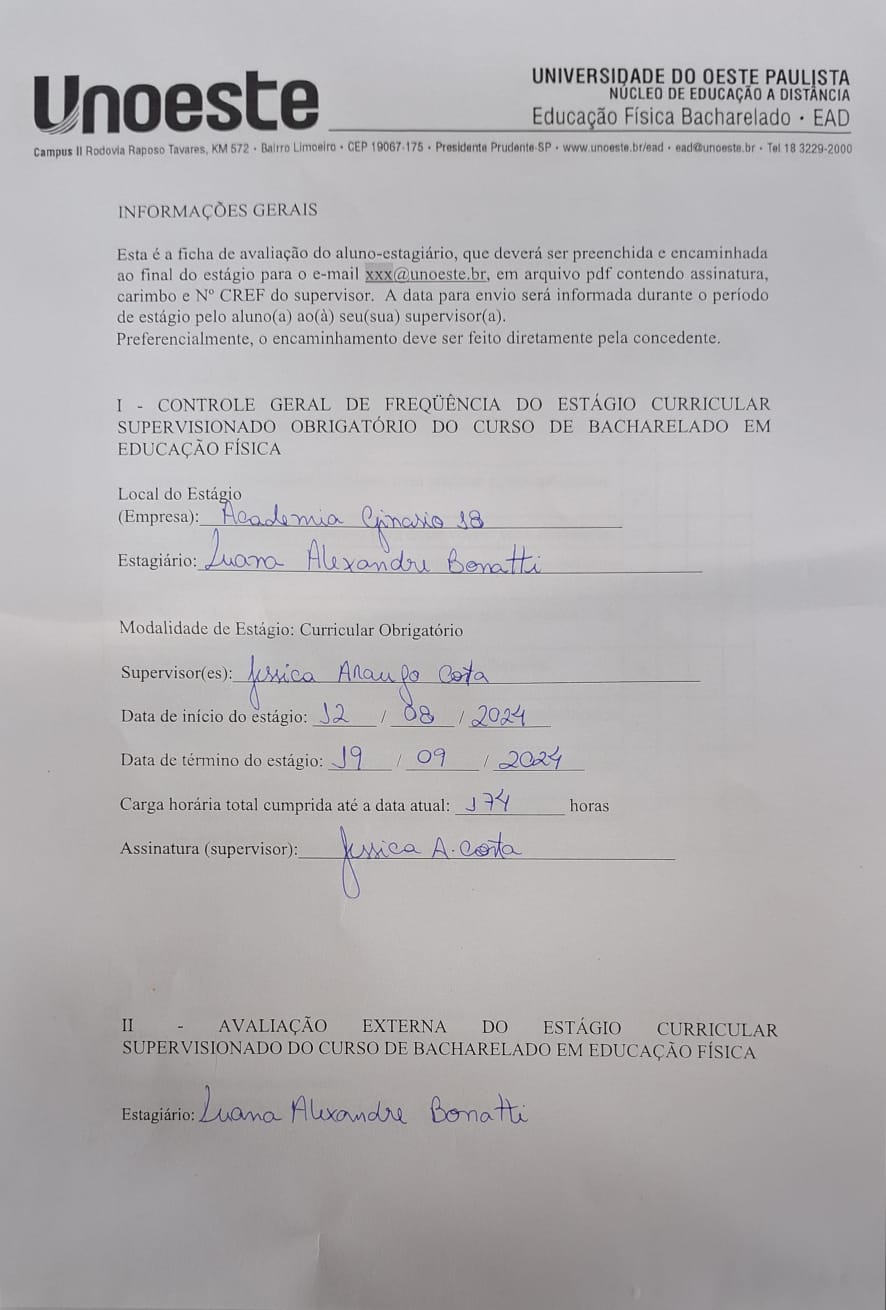 Unoeste
UNIVERSIDADE DO OESTE PAULISTA
NÚCLEO DE EDUCAÇÃO A DISTÂNCIA
Educação Física Bacharelado • EAD
Campus II Rodovia Raposo Tavares, KM 572 • Bairro Limoeiro • CEP 19067-175 • Presidente Prudente-SP • www.unoeste.br/ead • ead@unoeste.br • Tel 18 3229-2000
INFORMAÇÕES GERAIS
Esta é a ficha de avaliação do aluno-estagiário, que deverá ser preenchida e encaminhada
ao final do estágio para o e-mail xxx@unoeste.br, em arquivo pdf contendo assinatura,
carimbo e Nº CREF do supervisor. A data para envio será informada durante o período
de estágio pelo aluno(a) ao(à) seu(sua) supervisor(a).
Preferencialmente, o encaminhamento deve ser feito diretamente pela concedente.
I - CONTROLE GERAL DE FREQÜÊNCIA DO ESTÁGIO CURRICULAR
SUPERVISIONADO OBRIGATÓRIO DO CURSO DE BACHARELADO EM
EDUCAÇÃO FÍSICA
Local do Estágio
(Empresa): Academia Ginasio 18
Estagiário: Luana Alexandre Bonatti
Modalidade de Estágio: Curricular Obrigatório
Supervisor(es): Jessica Araujo Costa
Data de início do estágio: 12 / 08 / 2024
Data de término do estágio: 19 / 09 / 2024
Carga horária total cumprida até a data atual: 174 horas
Assinatura (supervisor): Jessica A. Costa
II - AVALIAÇÃO EXTERNA DO ESTÁGIO CURRICULAR
SUPERVISIONADO DO CURSO DE BACHARELADO EM EDUCAÇÃO FÍSICA
Estagiário: Luana Alexandre Bonatti